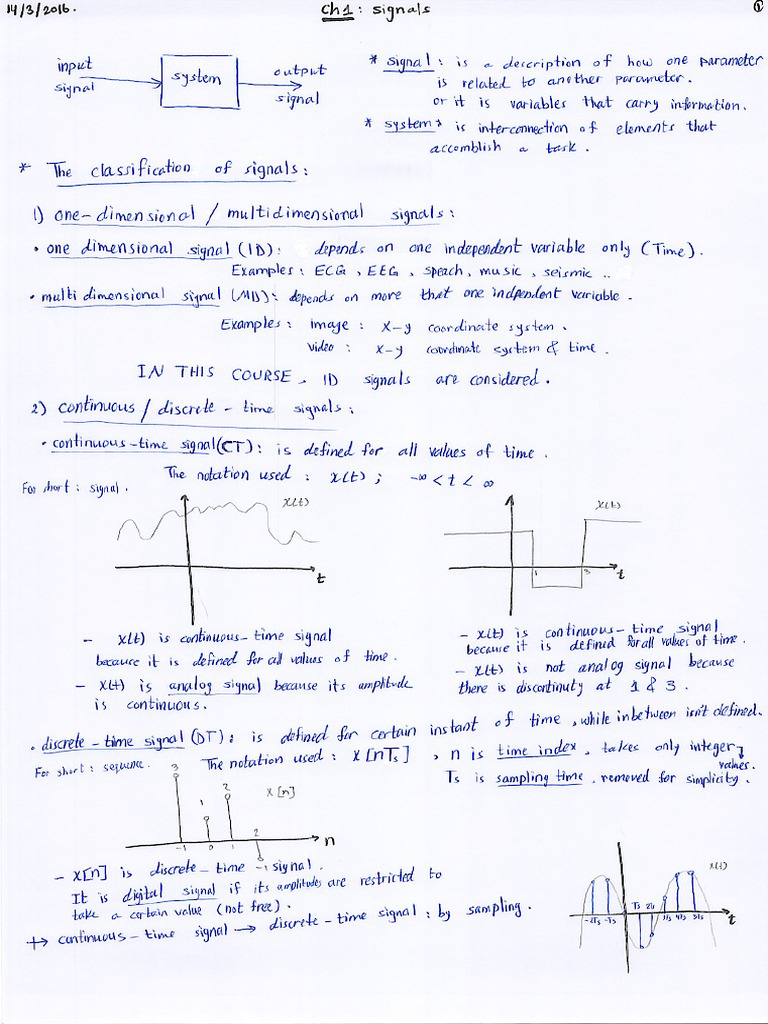 14/3/2016.
Ch1 : signals
1
input signal
system
output signal
* signal : is a description of how one parameter
is related to another parameter.
or it is variables that carry information.
* system : is interconnection of elements that
accomblish a task .
* The classification of signals :
1) one-dimensional / multidimensional signals :
• one dimensional signal (1D) : depends on one independent variable only (Time).
Examples : ECG , EEG , speach , music , seismic ..
• multi dimensional signal (MD) : depends on more that one indpendent variable .
Examples : image : x-y coordinate system .
video : x-y coordinate system & time .
IN THIS COURSE , 1D signals are considered .
2) continuous / discrete - time signals :
• continuous-time signal (CT) : is defined for all values of time .
The notation used : x(t) ; -∞ < t < ∞
For short : signal .
x(t)
t
x(t)
1
3
t
- x(t) is continuous-time signal
because it is defined for all values of time .
- x(t) is analog signal because its amplitude
is continuous .
- x(t) is continuous-time signal
because it is defined for all values of time .
- x(t) is not analog signal because
there is discontinuty at 1 & 3 .
• discrete-time signal (DT) : is defined for certain instant of time , while inbetween isn't defined.
For short : sequence.
The notation used : x[nTs] , n is time index , takes only integer values.
Ts is sampling time , removed for simplicity .
3
1
2
x[n]
-1 0 1 2
n
-1
- x[n] is discrete-time signal .
It is digital signal if its amplitudes are restricted to
take a certain value (not free) .
↦ continuous-time signal → discrete-time signal : by sampling .
x(t)
-2Ts -Ts Ts 2Ts 3Ts 4Ts 5Ts
t